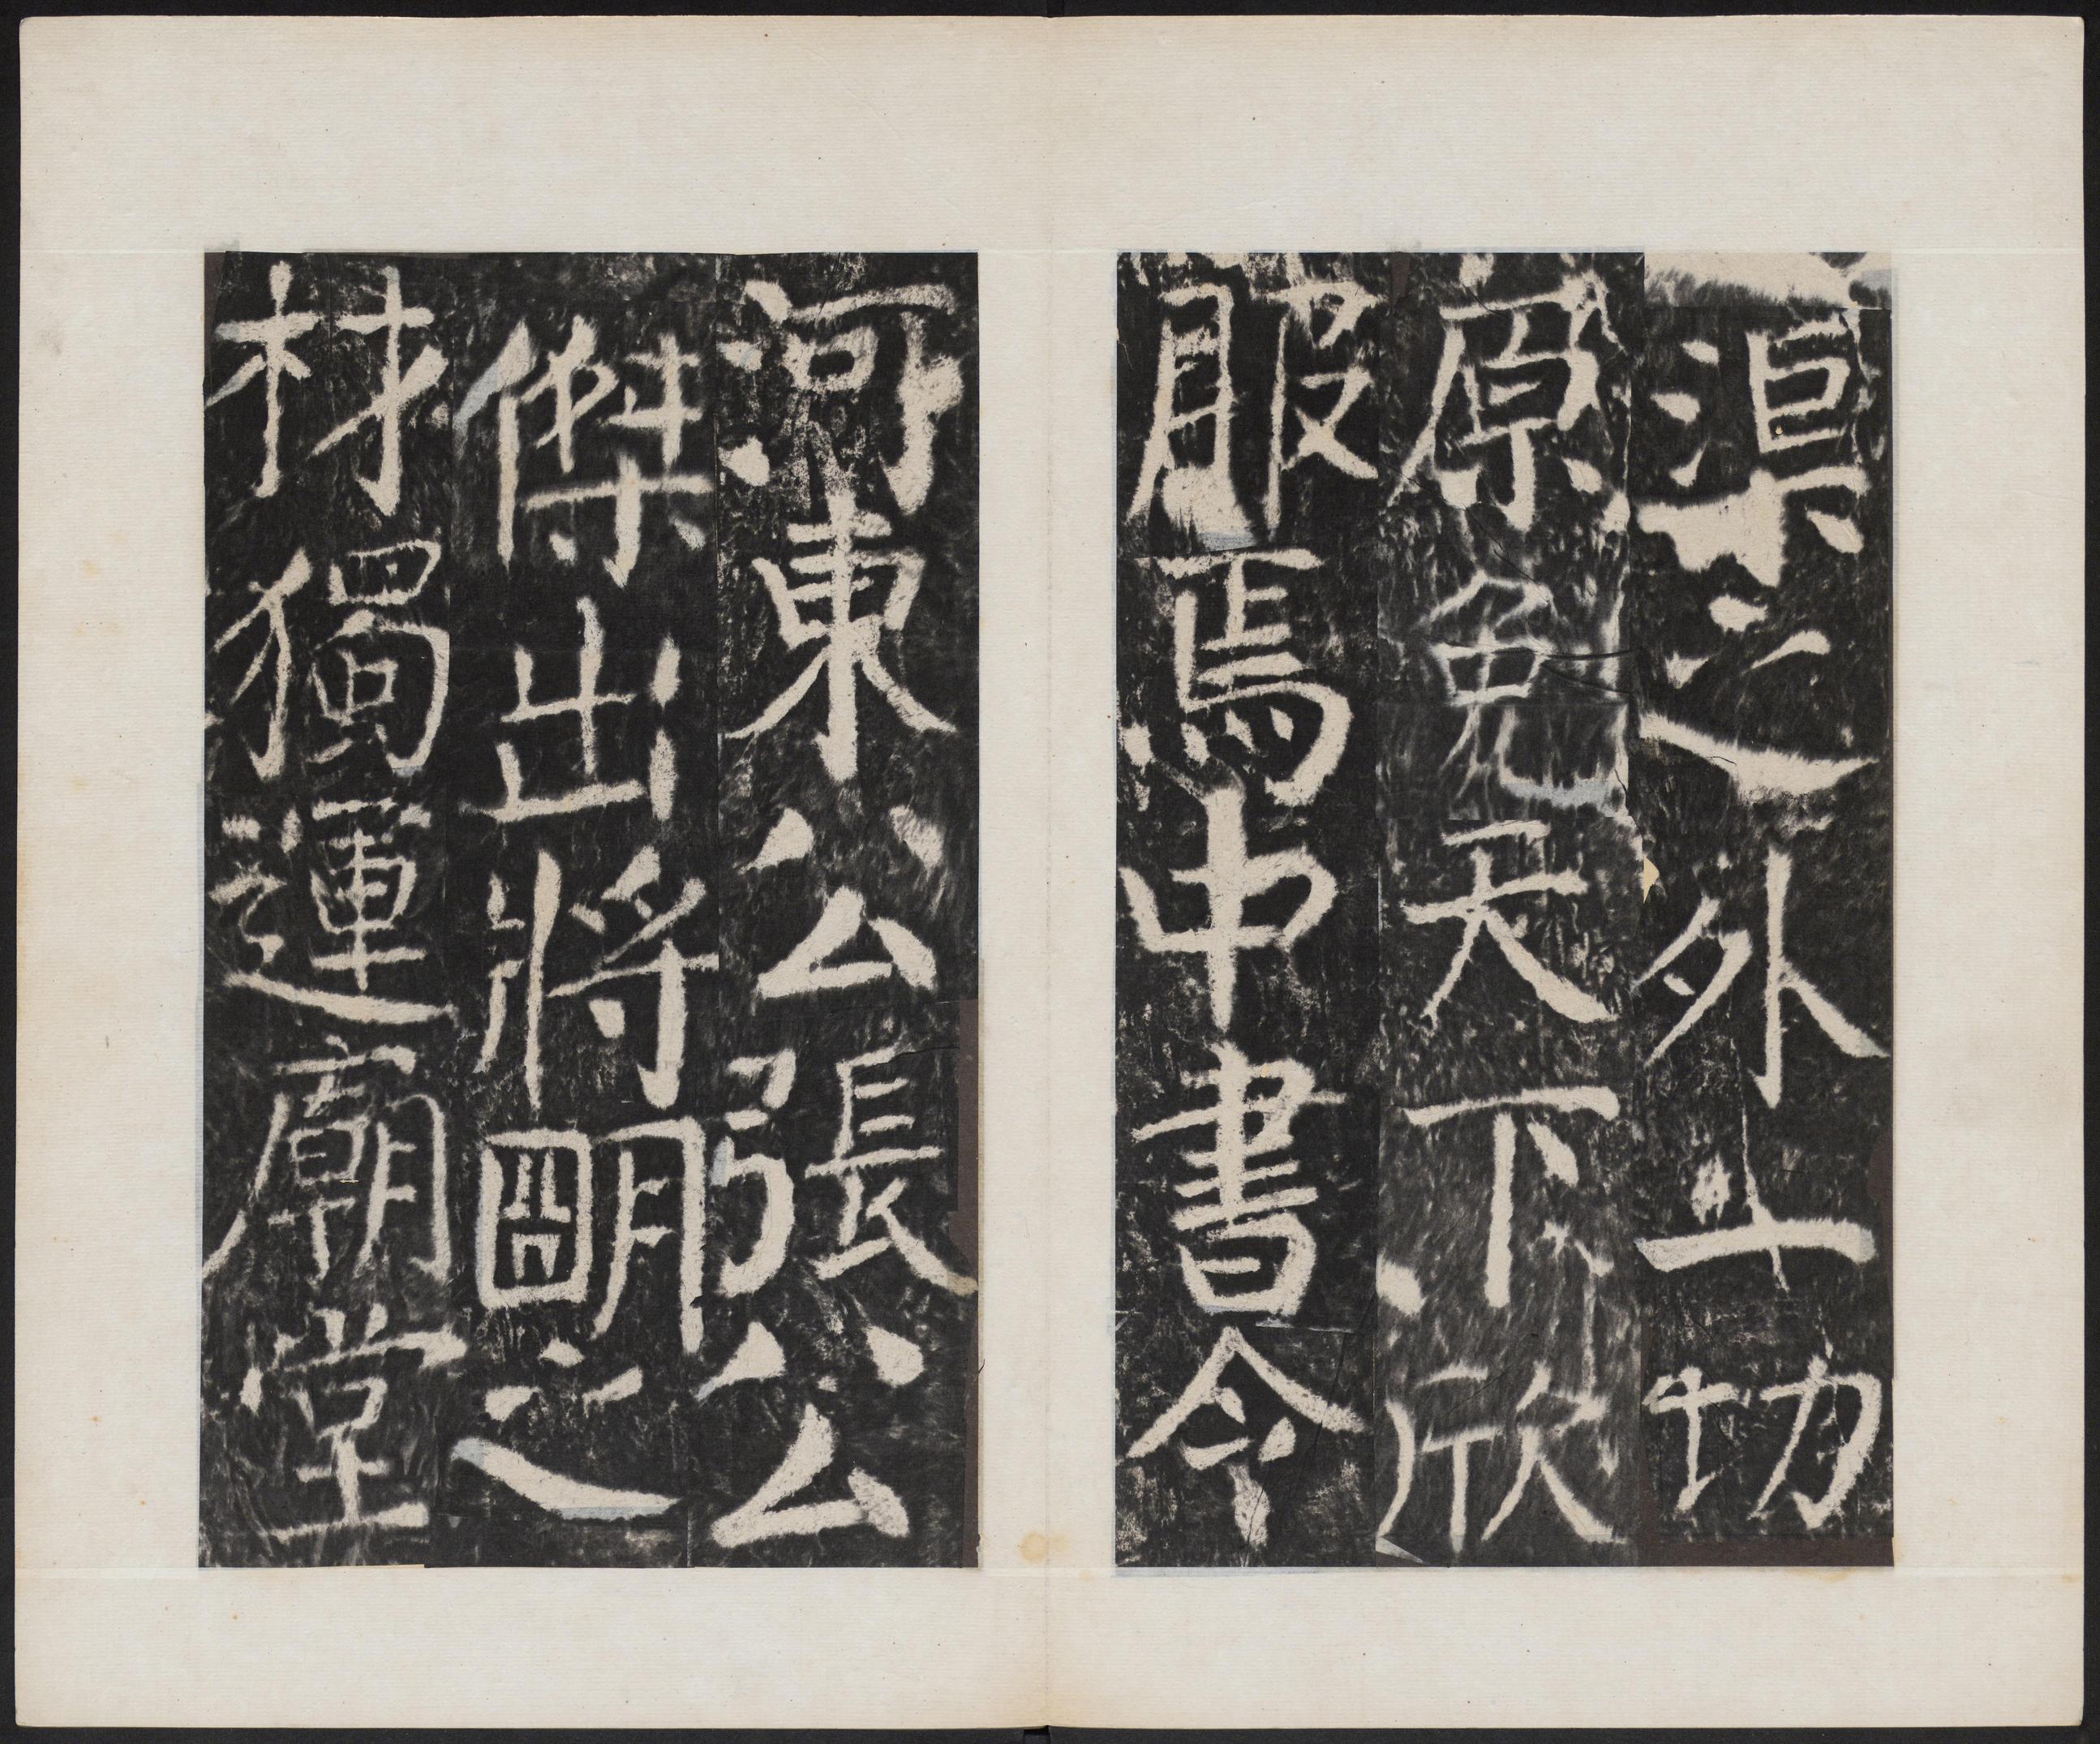 之外一切
原免天下欣
服焉中書令
河東公張公
傑出將明之
材獨運廟堂